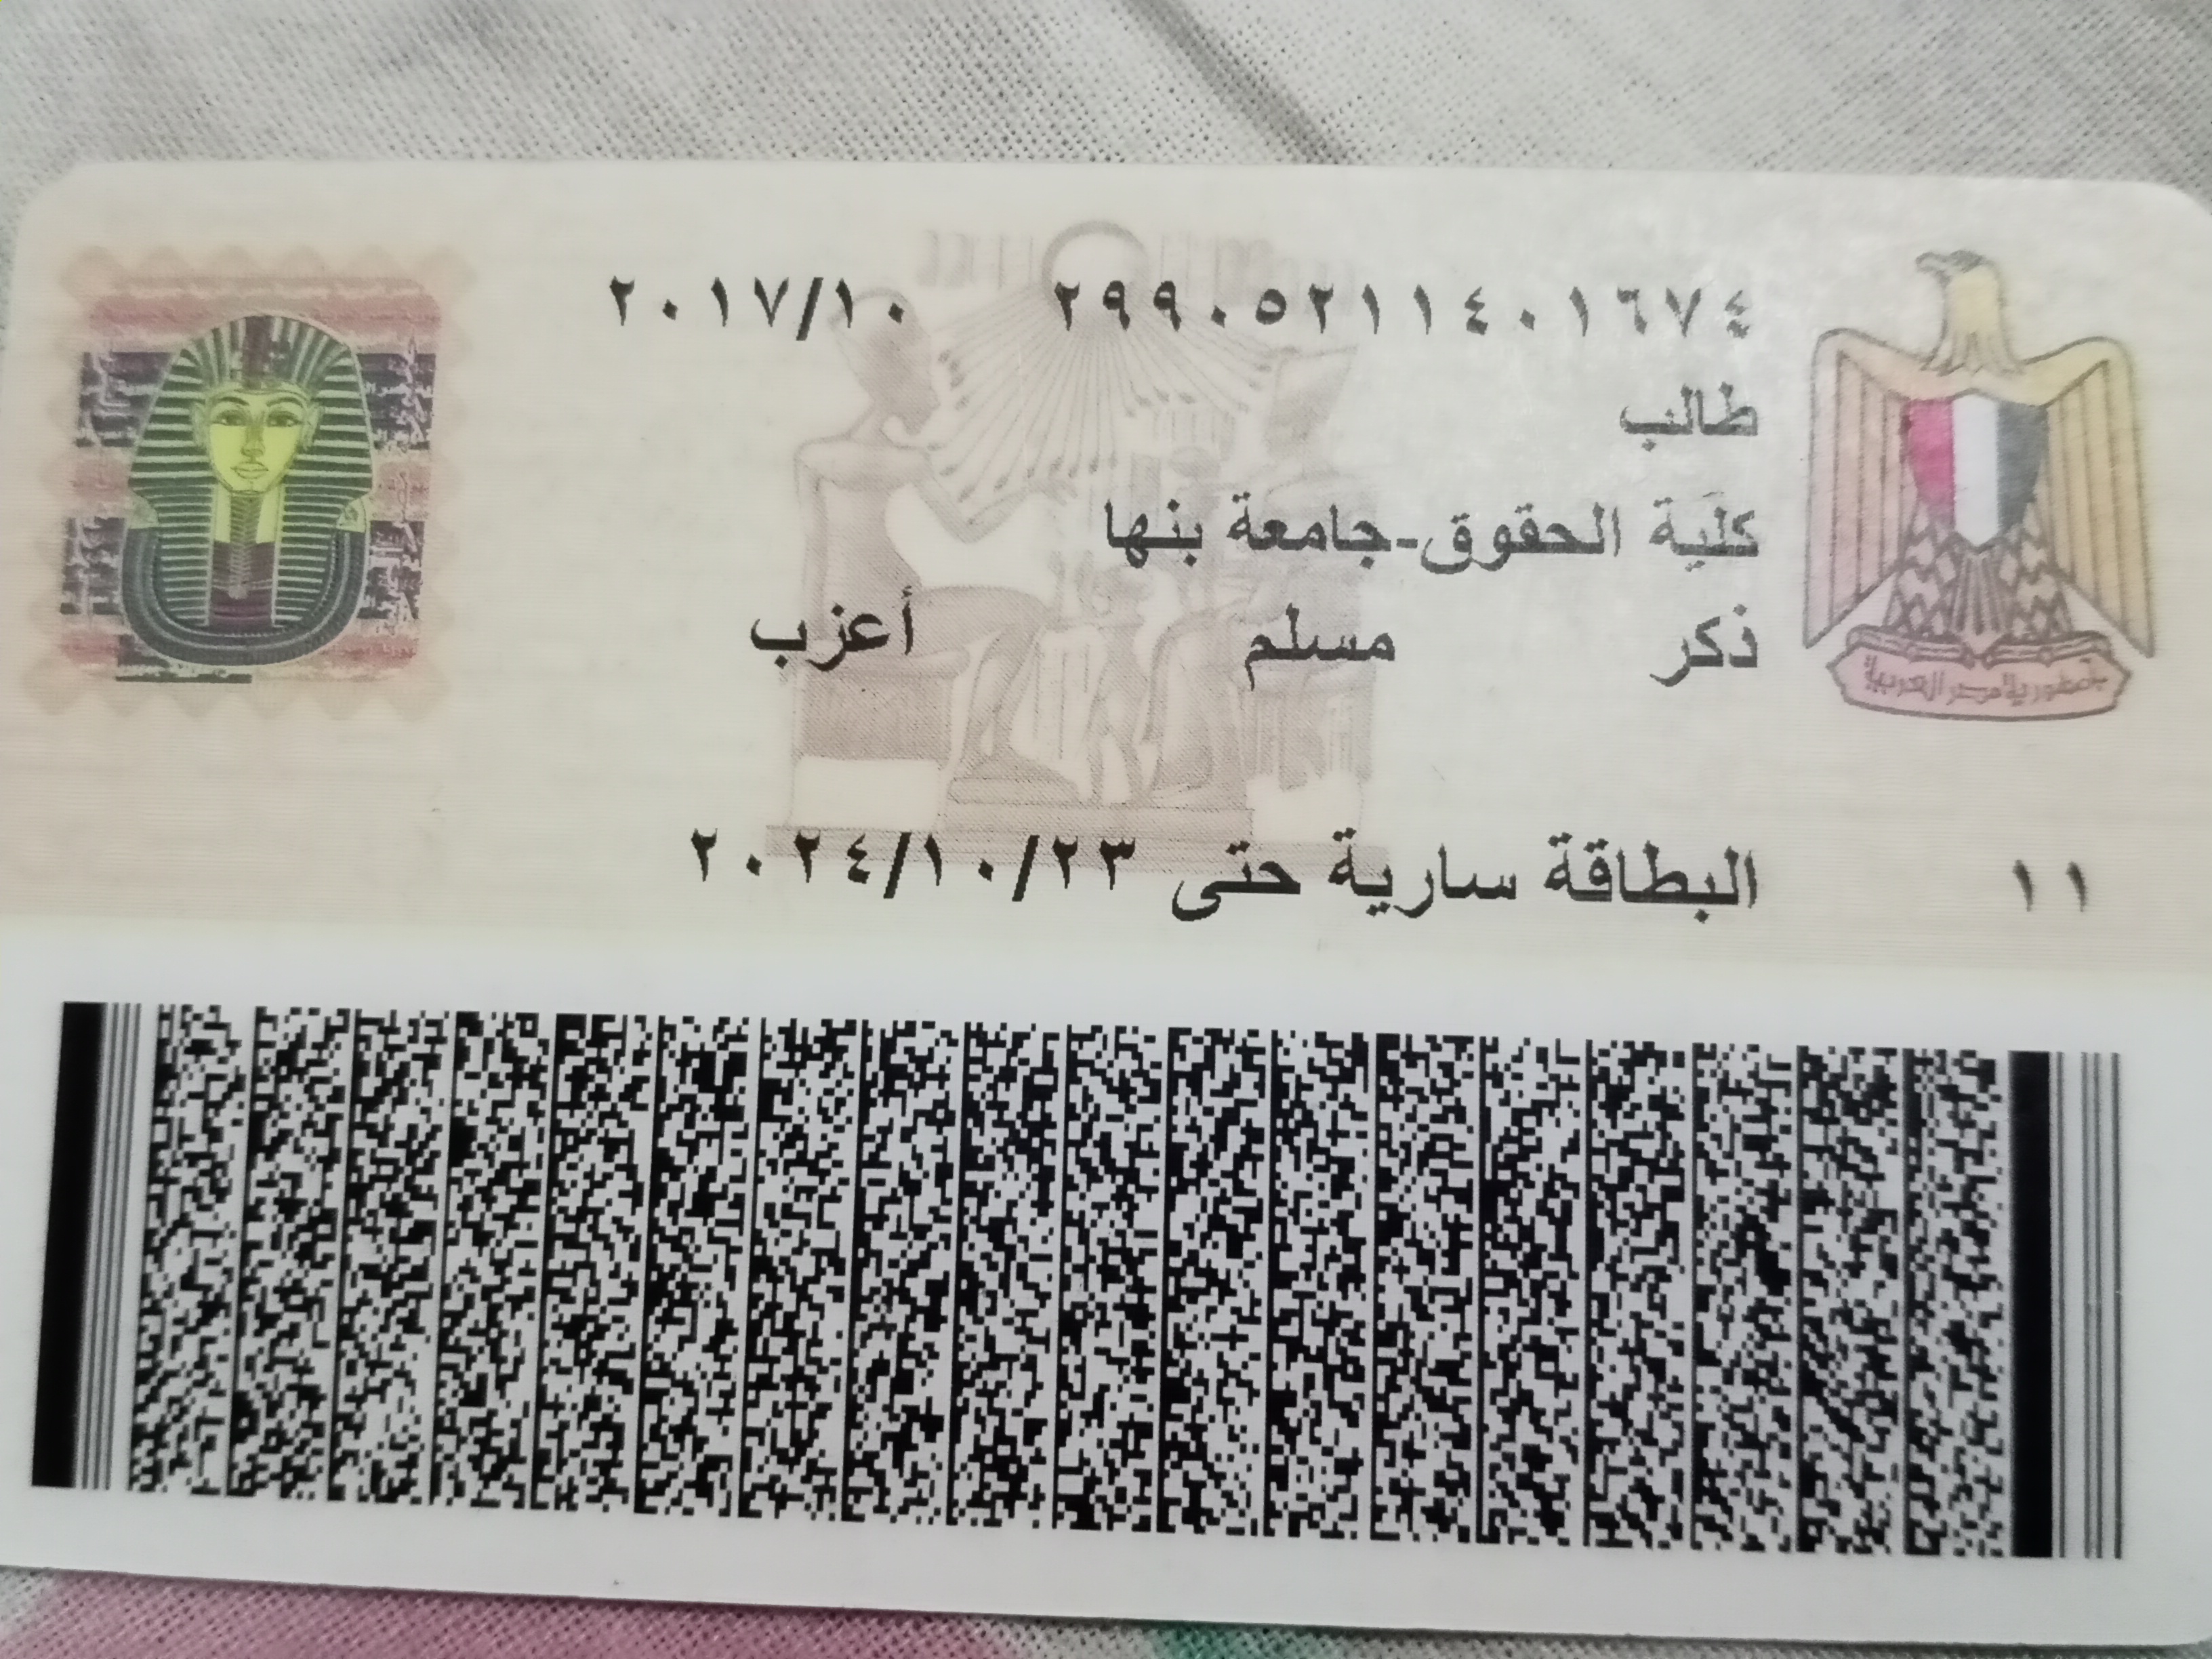 ٢٩٩٠٥٢١١٤٠١٦٧٤ ٢٠١٧/١٠
طالب
كلية الحقوق-جامعة بنها
ذكر مسلم أعزب
جمهورية مصر العربية
١١ البطاقة سارية حتى ٢٠٢٤/١٠/٢٣